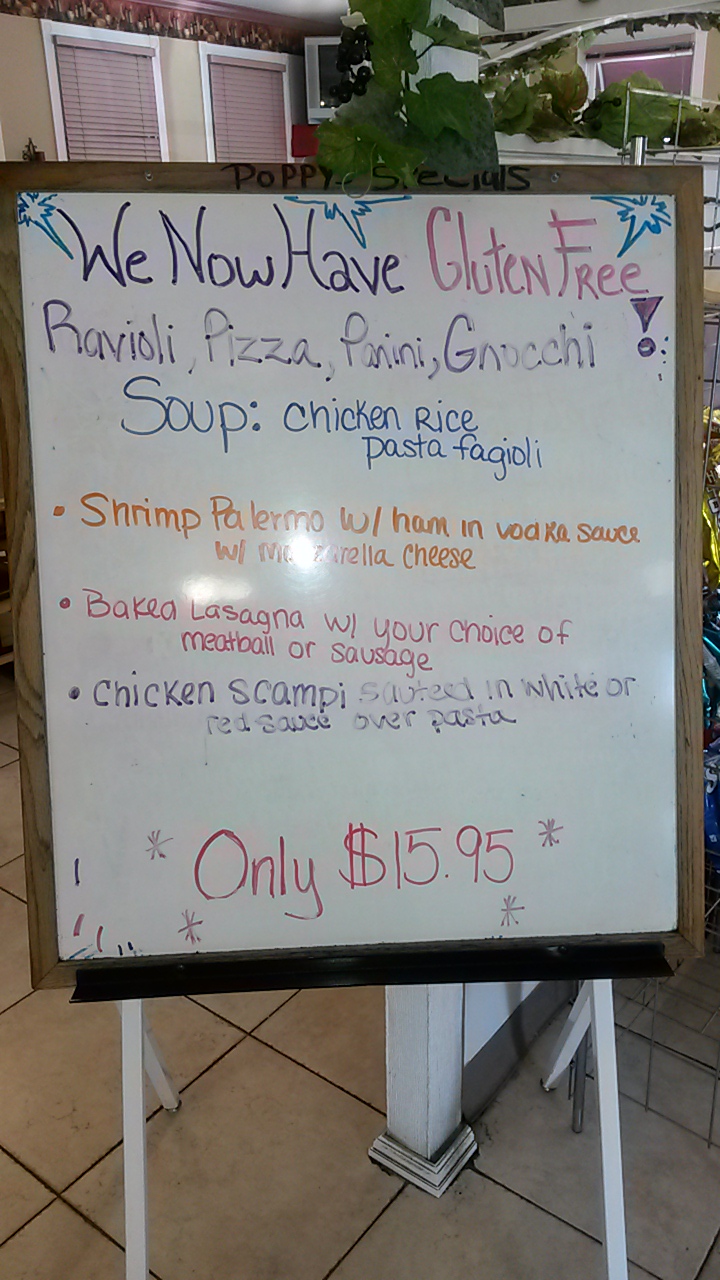 Poppy Specials
We Now Have Gluten Free
Ravioli, Pizza, Panini, Gnocchi!
Soup: chicken Rice
pasta fagioli
• Shrimp Palermo w/ ham in vodka sauce
w/ mozzarella cheese
• Baked Lasagna w/ your choice of
meatball or sausage
• Chicken scampi sauteed in white or
red sauce over pasta
* Only $15.95 *